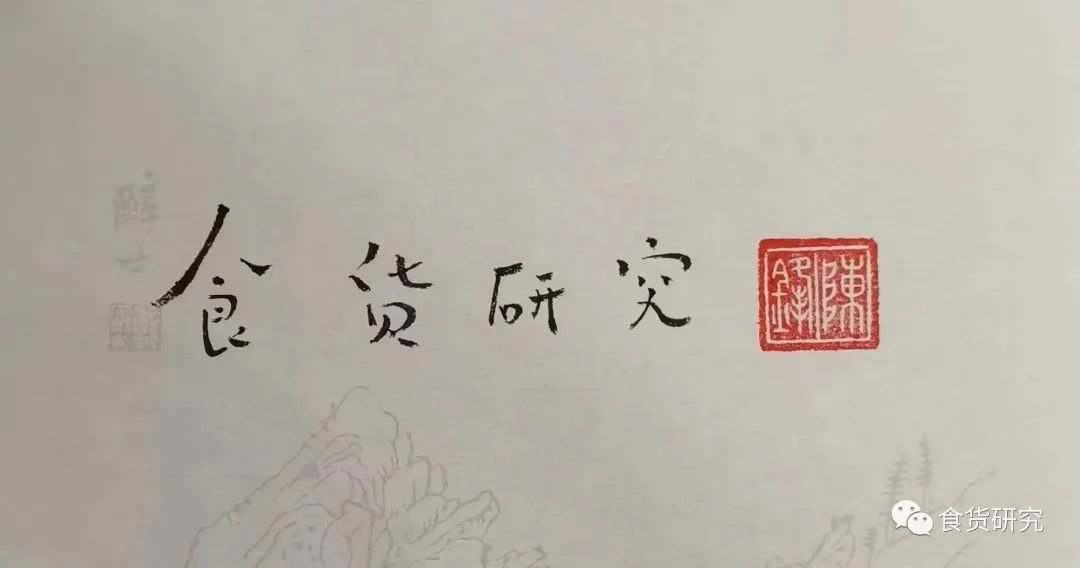 食货研究
陳鋒
食货研究